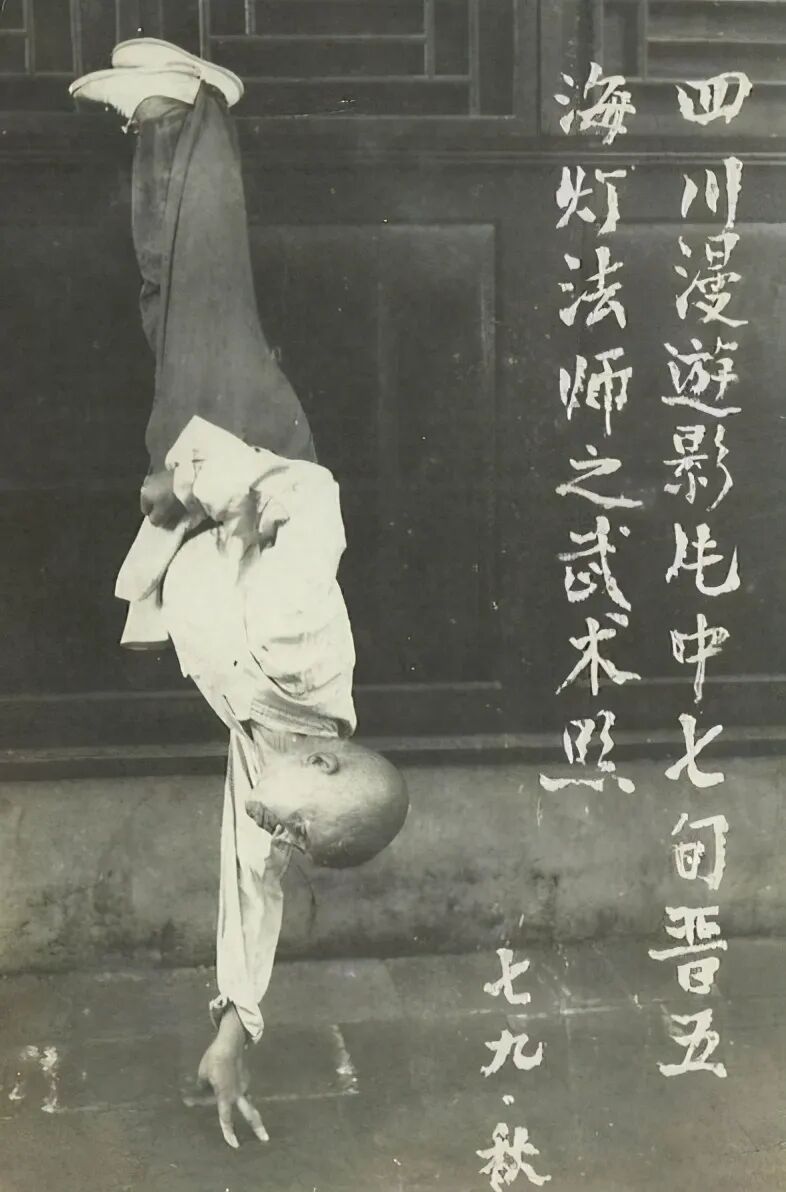 四川漫遊影片中七旬晋五
海灯法师之武术照
七九、秋